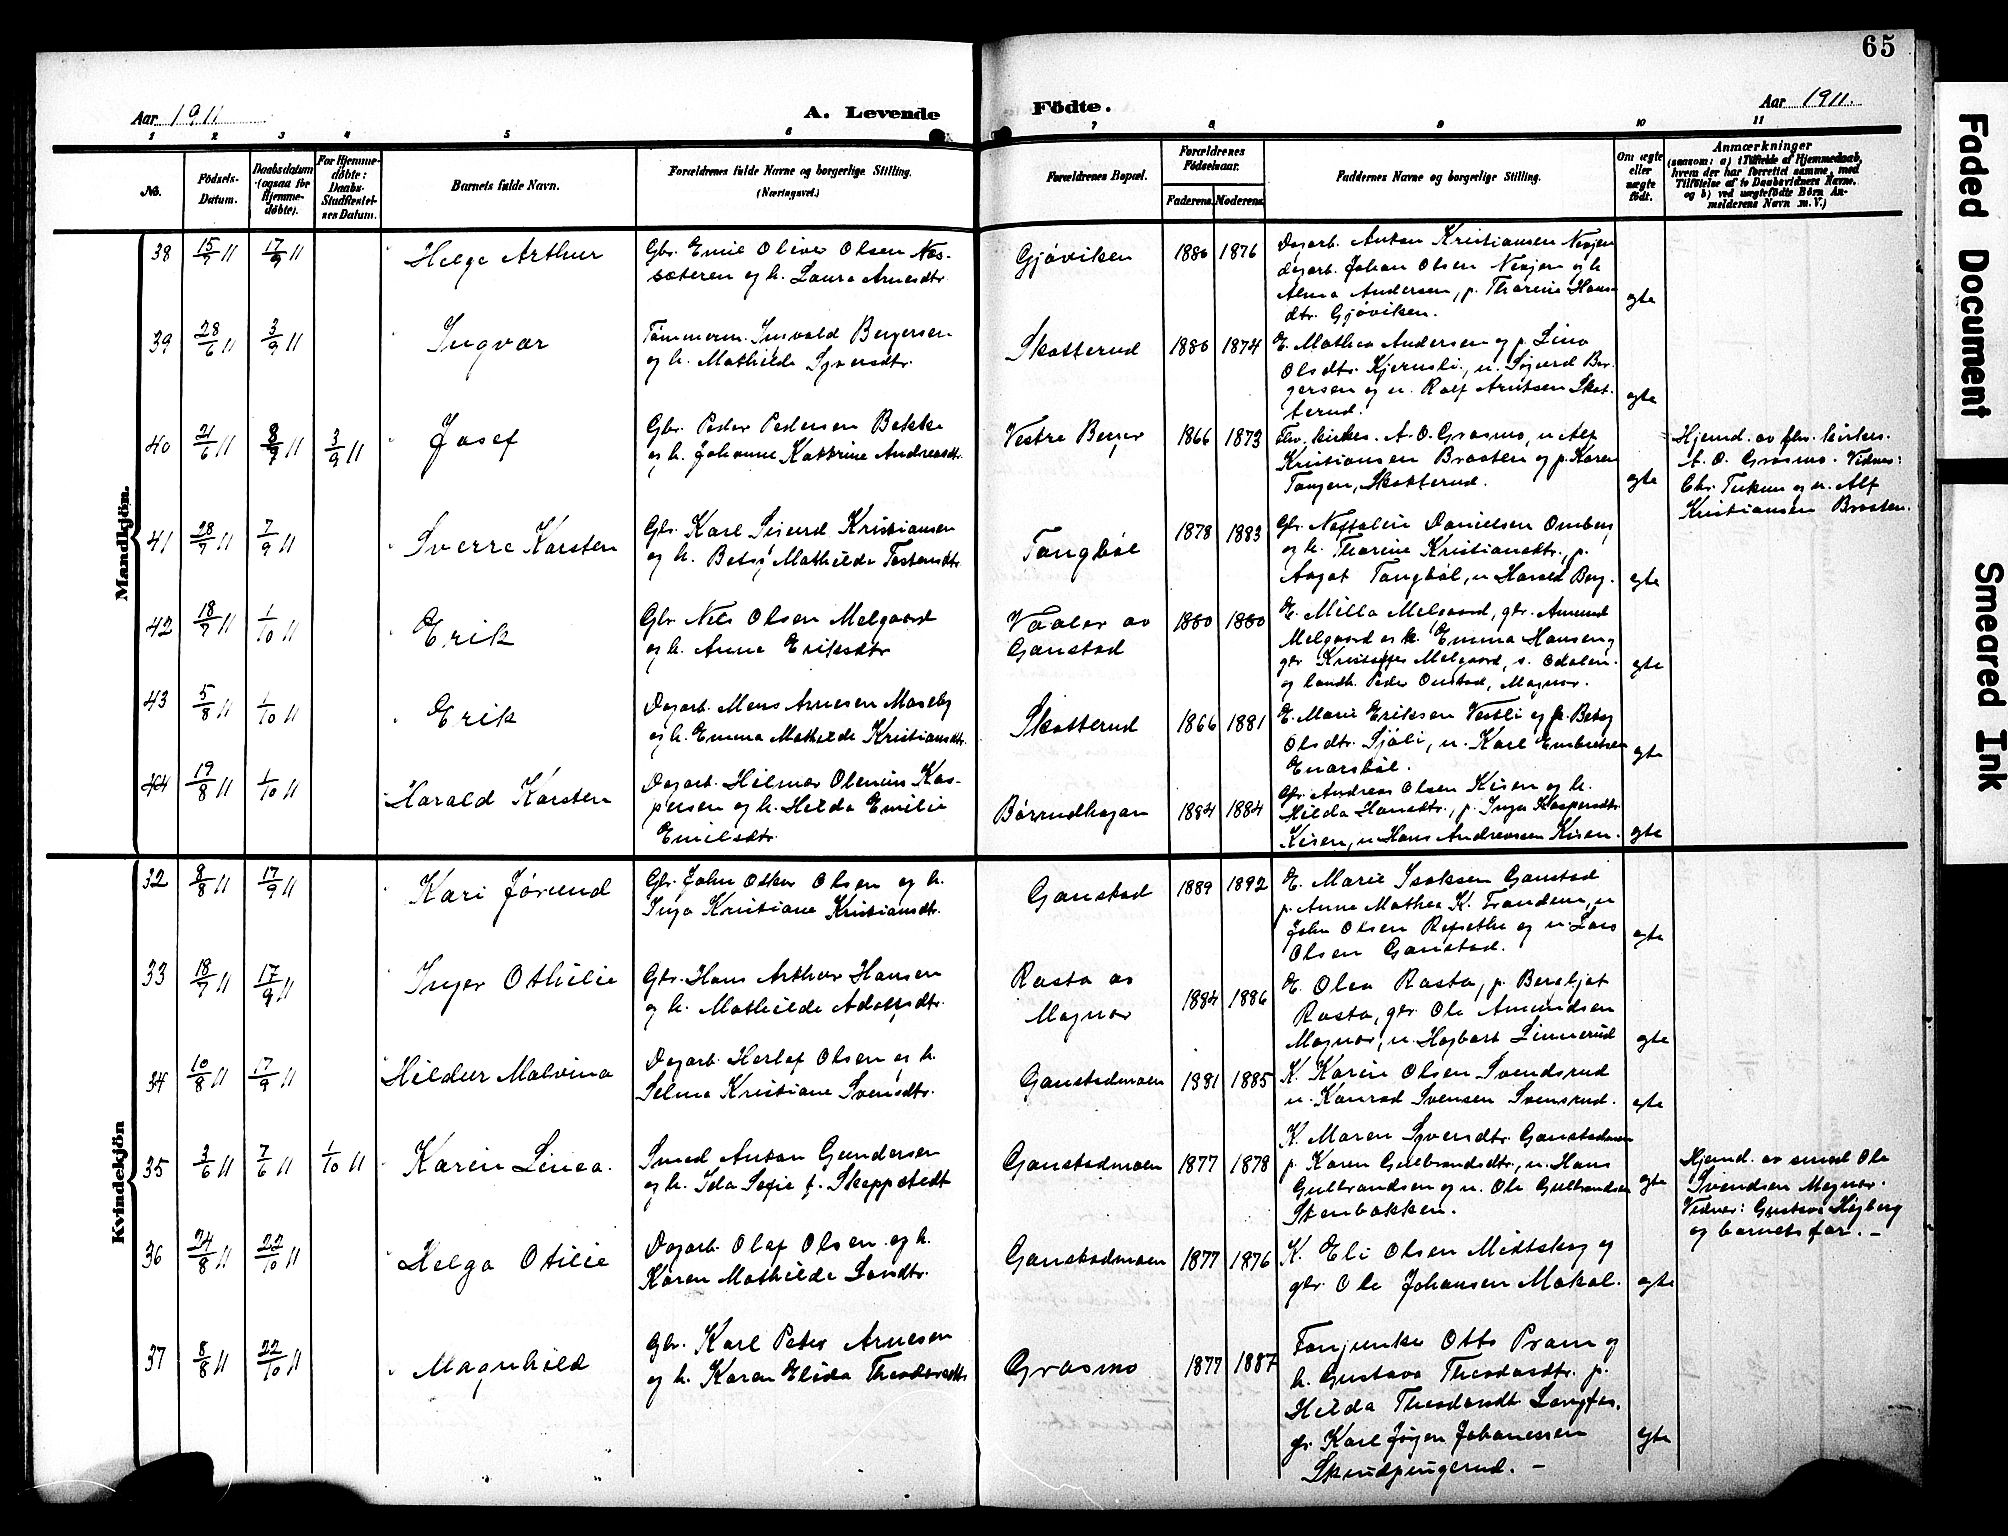 65
Aar 1911
A. Levende
Födte.
Aar 1911.
1 2 3 4 5 6 7 8 9 10 11
No.
Födsels-
Datum.
Daabsdatum
(ogsaa for
Hjemme-
døbte).
For Hjemme-
døbte:
Daabs-
Stadfæstel-
ses Datum.
Barnets fulde Navn.
Forældrenes fulde Navne og borgerlige Stilling.
(Næringsvei.)
Forældrenes Bopæl.
Forældrenes
Födselsaar.
Faderens.
Moderens.
Faddernes Navne og borgerlige Stilling.
Om ægte
eller
uægte
födt.
Anmærkninger
(saasom: a) i Tilfælde af Hjemmedaab,
hvem der har forrettet samme, med
Tilföielse af to Daabsvidners Navne,
og b) ved uægtefödte Börn An-
melderens Navn m. V.)
Mandkjön.
38 15/7 11 17/9 11
Helge Arthur
Gbr. Emil Oliver Olsen Næs-
sæteren og h. Laura Arnesdtr.
Gjøviken
1880 1876
Dagarb. Anton Kristiansen Nesjen
dagarb. Johan Olsen Nesjen og h.
Alma Andersen, p. Thorine Hans-
dtr. Gjøviken.
egte
39 28/6 11 3/9 11
Ingvar
Tømmerm. Ingvald Bergersen
og h. Mathilde Syversdtr.
Skotterud
1880 1874
E. Mathea Andersen og p. Lina
Olsdtr. Kjernsli, u. Sigurd Ber-
gersen og u. Rolf Arntsen Skot-
terud.
egte
40 21/6 11 8/9 11 3/9 11
Josef
Gbr. Peder Pedersen Bekke
og h. Johanne Kathrine Andreasdtr.
Vestre Berger
1866 1873
Fhv. kirkes. A. O. Grasmo, u. Alf
Kristiansen Braaten og p. Karen
Tangen, Skotterud.
egte
Hjemd. av fhv. kirkes.
A. O. Grasmo. Vidner:
Chr. Tukun og u. Alf
Kristiansen Braaten.
41 28/7 11 7/9 11
Sverre Karsten
Gbr. Karl Seierd Kristiansen
og h. Betsy Mathilde Tostensdtr.
Tangbøl
1878 1883
Gbr. Naftalin Danielsen Omberg
og h. Thorine Kristiansdtr., p.
Aagot Tangbøl, u. Harald Berg.
egte
42 18/7 11 1/10 11
Erik
Gbr. Nils Olsen Melgaard
og h. Anne Eriksdtr.
Vaaler av
Gaustad
1880 1880
E. Milla Melgaard, gbr. Amund
Melgaard og h. Emma Hansen,
gbr. Kristoffer Melgaard, s. Odalen.
og landh. Peder Onstad, Magnor.
egte
43 5/8 11 1/10 11
Erik
Dagarb. Mons Arnesen Maseby
og h. Emma Mathilde Kristiansdtr.
Skotterud
1866 1881
E. Marie Eriksen Vestli og p. Betsy
Olsdtr. Sjøli, u. Karl Embretsen
Enarsbøl.
egte
44 19/8 11 1/10 11
Harald Karsten
Dagarb. Hilmar Olenius Kas-
persen og h. Hilda Emilie
Emilsdtr.
Børrudhagan
1884 1884
Gbr. Andreas Olsen Kisen og h.
Hilda Hansdtr., p. Inga Kaspersdtr.
Kisen, u. Hans Andreassen Kisen.
egte
Kvindekjön
32 8/8 11 17/9 11
Kari Jørund
Gbr. John Oskar Olsen og h.
Inga Kristiane Kristiansdtr.
Gaustad
1889 1892
E. Marie Isaksen Gaustad
p. Anne Mathea K. Trandem, u.
John Olsen Refsethe og u. Lars
Olsen Gaustad.
egte
33 18/7 11 17/9 11
Inger Othilie
Gbr. Hans Arthur Hansen
og h. Mathilde Adolfsdtr.
Rasta av
Magnor
1884 1886
E. Olea Rasta, p. Bergljot
Rasta, gbr. Ole Amundsen
Magnor, u. Hagbart Linnerud
egte
34 10/8 11 17/9 11
Hildur Malvina
Dagarb. Herlof Olsen og h.
Selma Kristiane Svensdtr.
Gaustadmoen
1881 1885
K. Karin Olsen Svendsrud
u. Konrad Svensen Svensrud.
egte
35 3/6 11 7/6 11 1/10 11
Karin Linea.
Smed Anton Gundersen
og h. Ida Sofie f. Skeppstedt
Gaustadmoen
1877 1878
K. Maren Syversdtr. Gaustadmoen
p. Karen Gulbrandsdtr., u. Hans
Gulbrandsen og u. Ole Gulbrandsen
Stenbakken.
egte
Hjemd. av smed Ole
Svendsen Magnor.
Vidner: Gustava Høiberg
og barnets far. -
36 24/8 11 22/10 11
Helga Otilie
Dagarb. Olaf Olsen og h.
Karen Mathilde Larsdtr.
Gaustadmoen
1877 1876
K. Eli Olsen Midtskog og
gbr. Ole Johansen Makal.
egte
37 8/8 11 22/10 11
Magnhild
Gbr. Karl Peter Arnesen
og h. Karen Elida Theodorsdtr.
Grasmo
1877 1887
Fanjunke Otto Pram og
h. Gustava Theodorsdtr. p.
Hilda Theodorsdtr. Langfos.
gbr. Karl Jørgen Johanessen
Skrudpungerud. -
egte
Faded Document
Smeared Ink